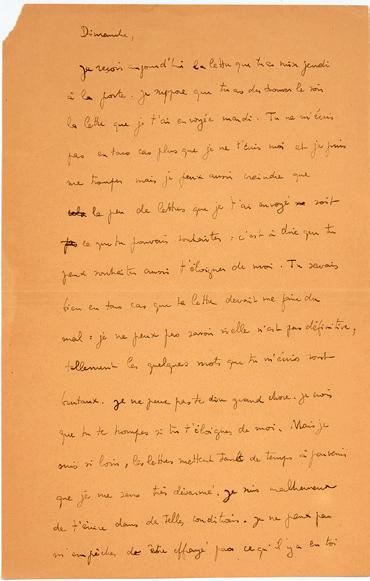 Dimanche,
Je reçois aujourd'hui la lettre que tu as mise jeudi
à la poste. Je suppose que tu as dû trouver le soir
la lettre que je t'ai envoyée mardi. Tu ne m'écris
pas en tous cas plus que je ne t'écris moi et je puis
me tromper mais je peux aussi craindre que
le peu de lettres que je t'ai envoyé ne soit
ce que tu pouvais souhaiter : c'est à dire que tu
peux souhaiter aussi t'éloigner de moi. Tu savais
bien en tous cas que ta lettre devait me faire du
mal : je ne peux pas savoir si elle n'est pas définitive,
tellement les quelques mots que tu m'écris sont
brutaux. Je ne peux pas te dire grand chose. Je crois
que tu te trompes si tu t'éloignes de moi. Mais je
suis si loin, les lettres mettent tant de temps à parvenir
que je me sens très désarmé. Je suis malheureux
de t'écrire dans de telles conditions. Je ne peux pas
m'empêcher de être effrayé par ce qu'il y a en toi